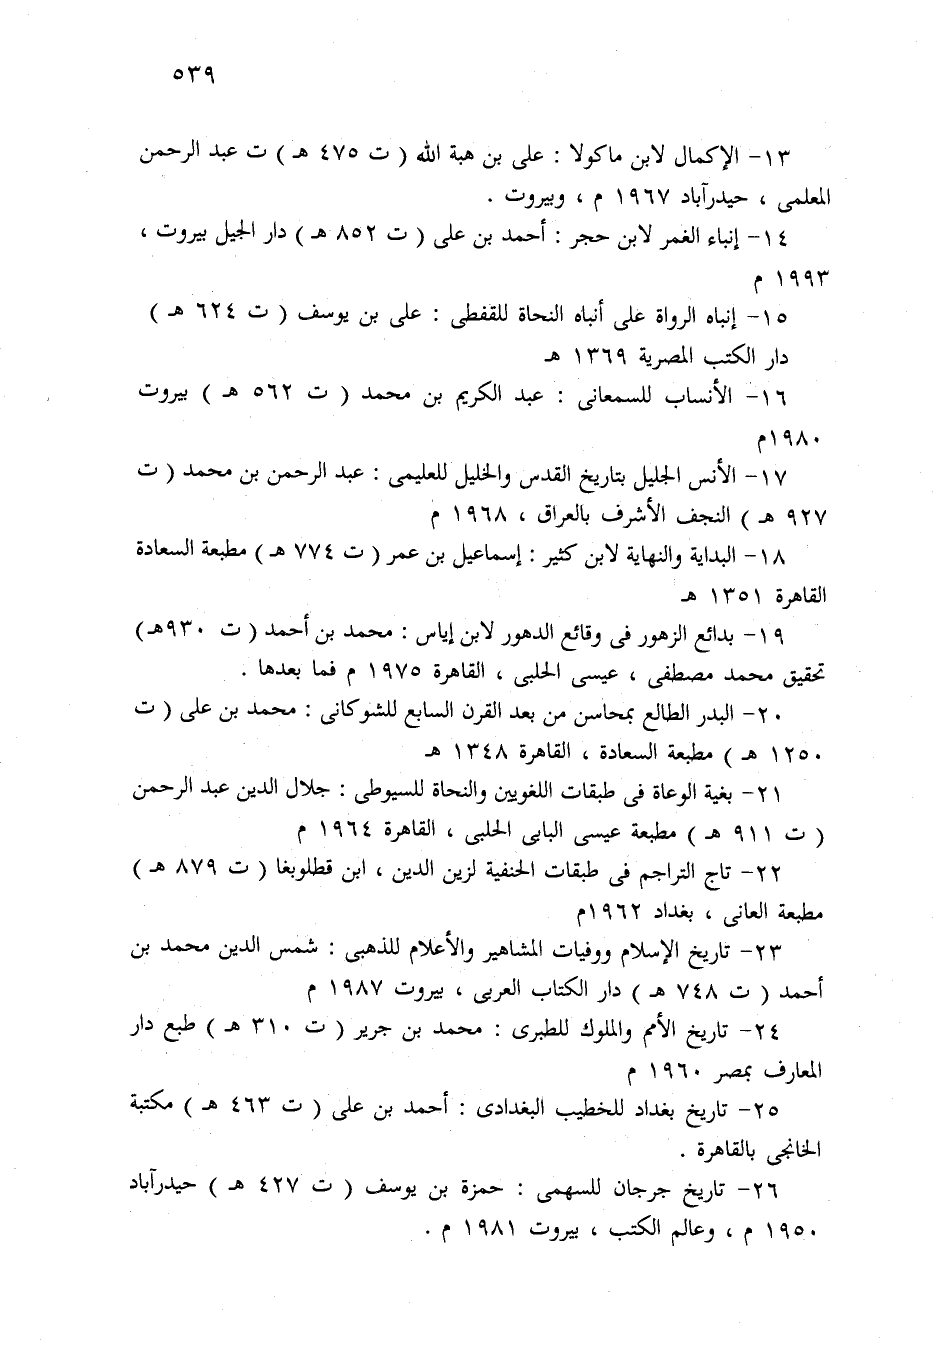 ٥٣٩
١٣- الإكمال لابن ماكولا : على بن هبة الله ( ت ٤٧٥ هـ ) ت عبد الرحمن
المعلمى ، حيدرآباد ١٩٦٧ م ، وبيروت .
١٤- إنباء الغمر لابن حجر : أحمد بن على ( ت ٨٥٢ هـ ) دار الجيل بيروت ،
١٩٩٣ م
١٥- إنباه الرواة على أنباه النحاة للقفطى : على بن يوسف ( ت ٦٢٤ هـ )
دار الكتب المصرية ١٣٦٩ هـ
١٦- الأنساب للسمعانى : عبد الكريم بن محمد ( ت ٥٦٢ هـ ) بيروت
١٩٨٠م
١٧- الأنس الجليل بتاريخ القدس والخليل للعليمى : عبد الرحمن بن محمد ( ت
٩٢٧ هـ ) النجف الأشرف بالعراق ، ١٩٦٨ م
١٨- البداية والنهاية لابن كثير : إسماعيل بن عمر ( ت ٧٧٤ هـ ) مطبعة السعادة
القاهرة ١٣٥١ هـ
١٩- بدائع الزهور فى وقائع الدهور لابن إياس : محمد بن أحمد ( ت ٩٣٠هـ )
تحقيق محمد مصطفى ، عيسى الحلبى ، القاهرة ١٩٧٥ م فما بعدها .
٢٠- البدر الطالع بمحاسن من بعد القرن السابع للشوكانى : محمد بن على ( ت
١٢٥٠ هـ ) مطبعة السعادة ، القاهرة ١٣٤٨ هـ
٢١- بغية الوعاة فى طبقات اللغويين والنحاة للسيوطى : جلال الدين عبد الرحمن
( ت ٩١١ هـ ) مطبعة عيسى البابى الحلبى ، القاهرة ١٩٦٤ م
٢٢- تاج التراجم فى طبقات الحنفية لزين الدين ، ابن قطلوبغا ( ت ٨٧٩ هـ )
مطبعة العانى ، بغداد ١٩٦٢م
٢٣- تاريخ الإسلام ووفيات المشاهير والأعلام للذهبى : شمس الدين محمد بن
أحمد ( ت ٧٤٨ هـ ) دار الكتاب العربى ، بيروت ١٩٨٧ م
٢٤- تاريخ الأمم والملوك للطبرى : محمد بن جرير ( ت ٣١٠ هـ ) طبع دار
المعارف بمصر ١٩٦٠ م
٢٥- تاريخ بغداد للخطيب البغدادى : أحمد بن على ( ت ٤٦٣ هـ ) مكتبة
الخانجى بالقاهرة .
٢٦- تاريخ جرجان للسهمى : حمزة بن يوسف ( ت ٤٢٧ هـ ) حيدرآباد
١٩٥٠ م ، وعالم الكتب ، بيروت ١٩٨١ م .